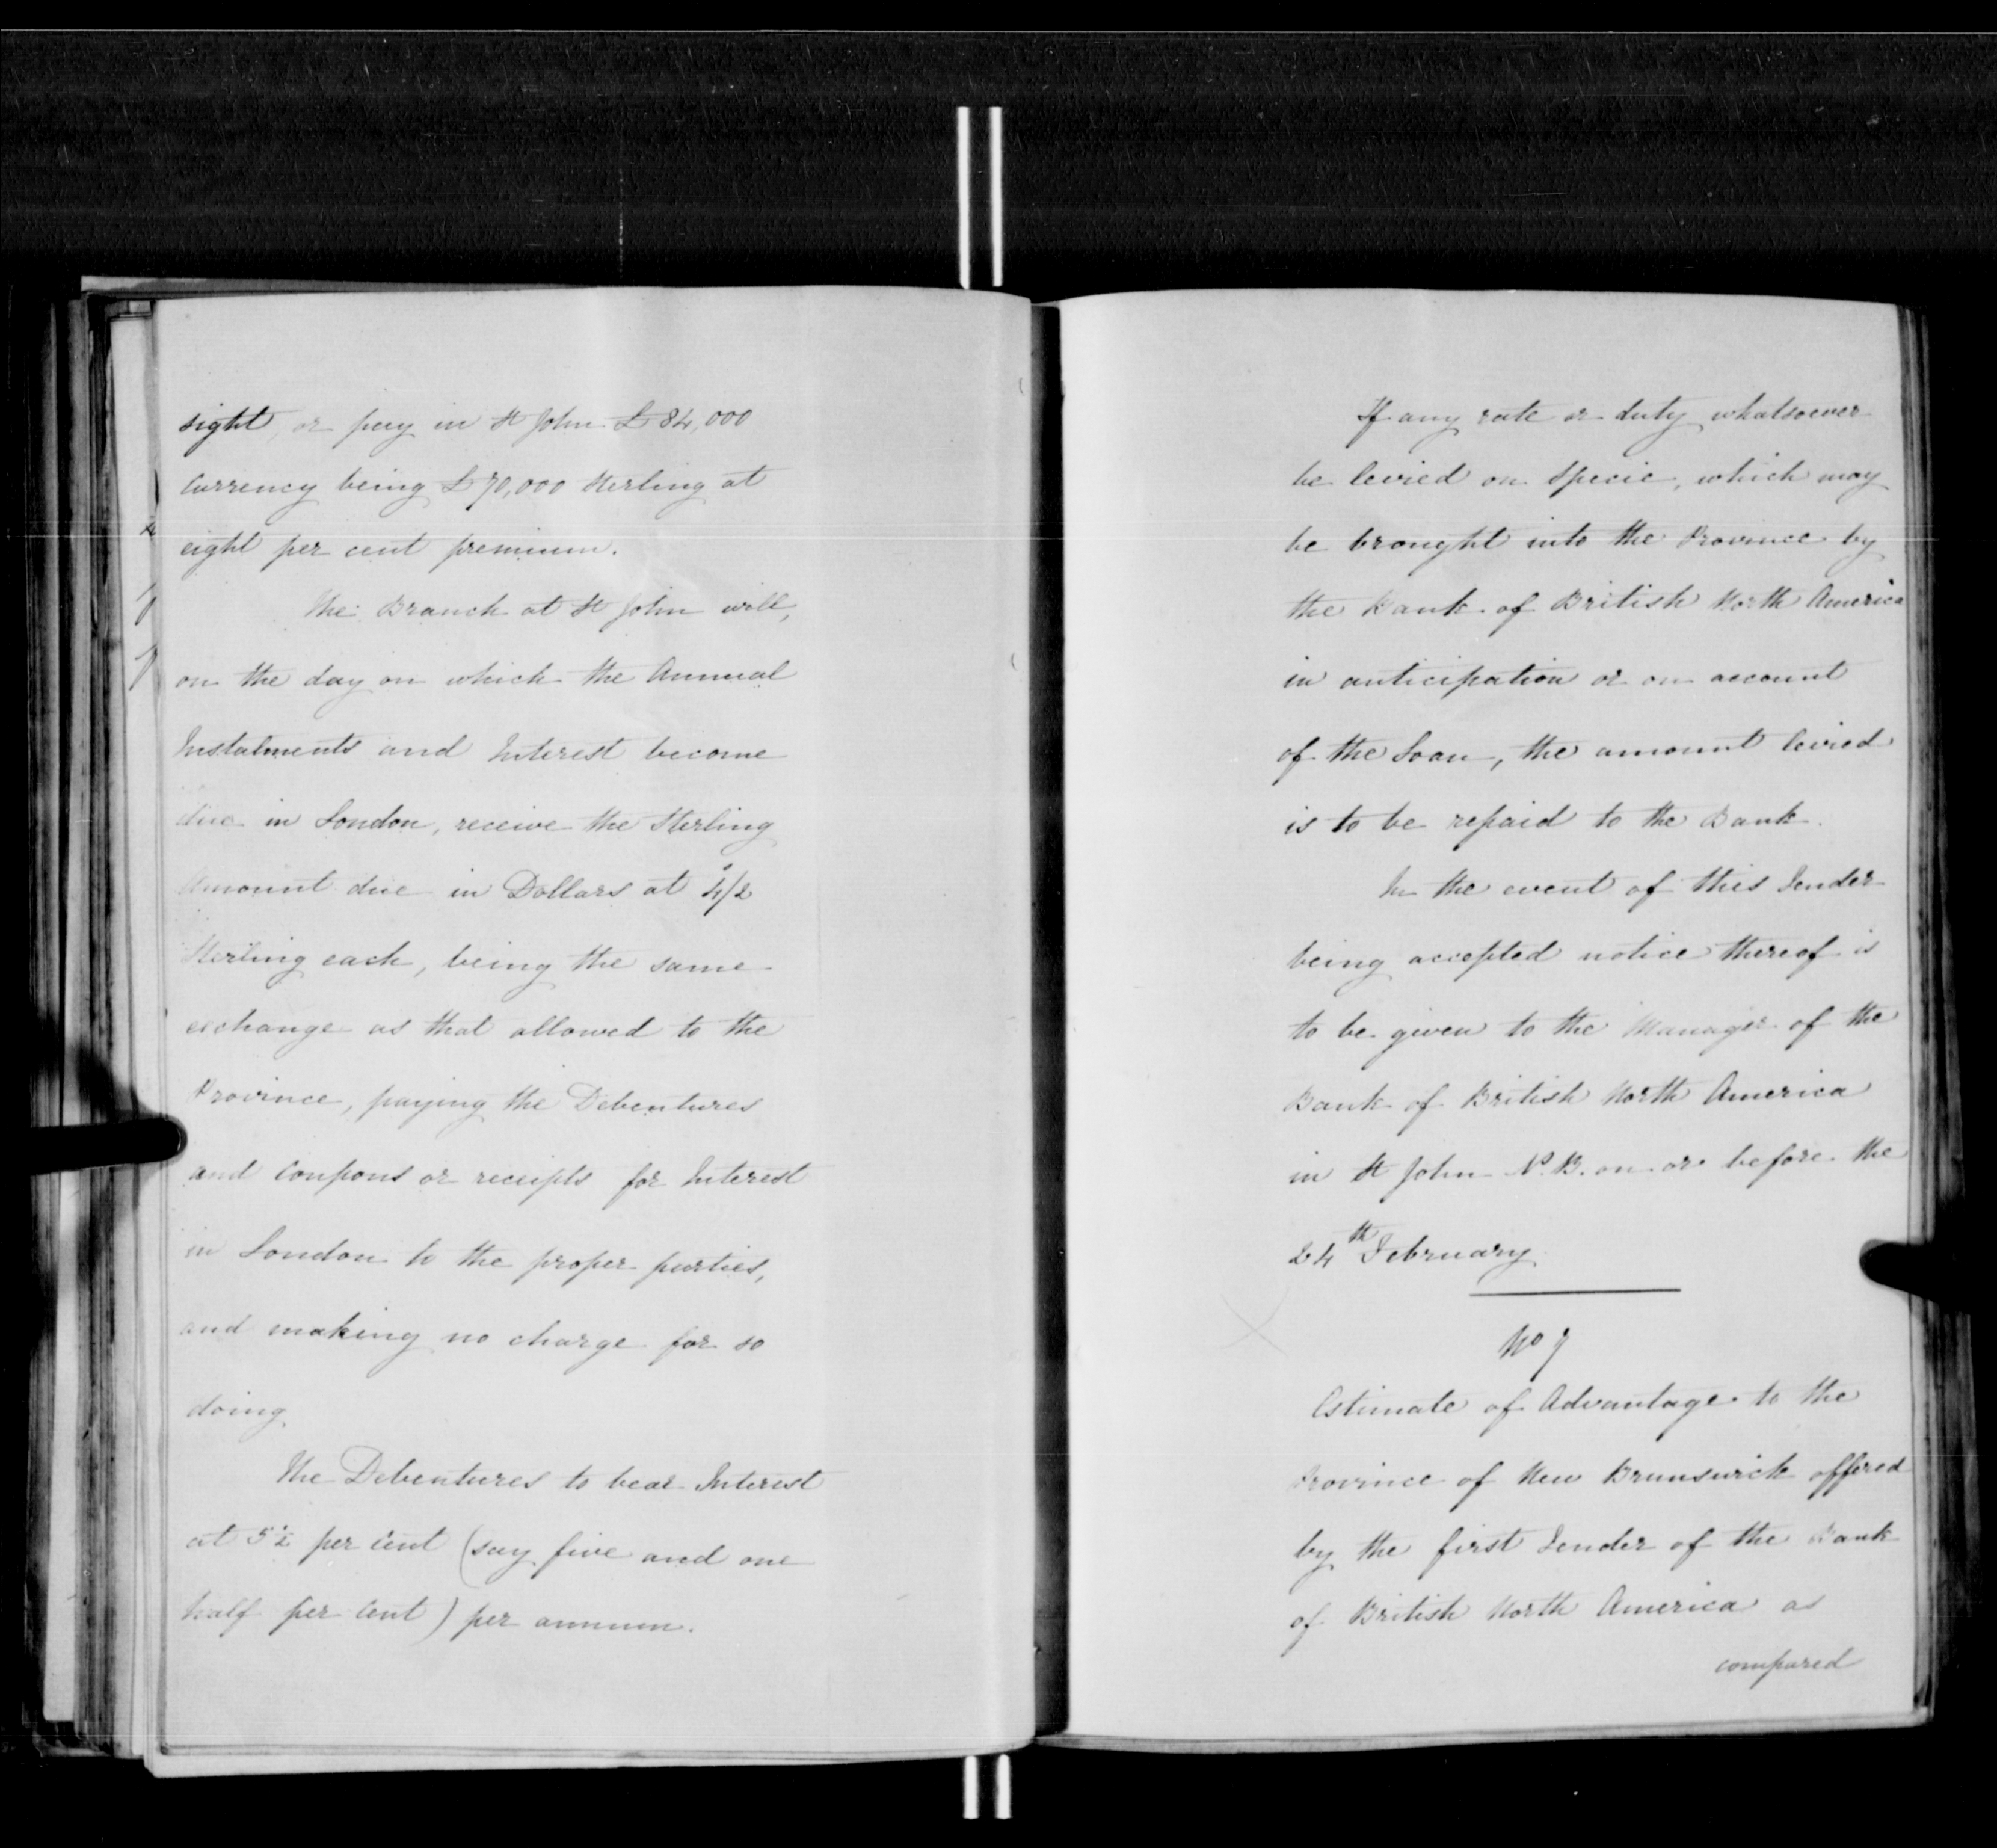 sight, or pay in St John £84,000
Currency being £70,000 Sterling at
eight per cent premium.
The Branch at St John will,
on the day on which the Annual
Instalments and Interest become
due in London, receive the Sterling
Amount due in Dollars at 4/2
Sterling each, being the same
exchange as that allowed to the
Province, paying the Debentures
and Coupons or receipts for Interest
in London to the proper parties,
and making no charge for so
doing
The Debentures to bear Interest
at 5½ per Cent (say five and one
half per Cent) per annum.
If any rate or duty whatsoever
be levied on Specie, which may
be brought into the Province by
the Bank of British North America
in anticipation or on account
of the Loan, the amount levied
is to be repaid to the Bank.
In the event of this Tender
being accepted notice thereof is
to be given to the Manager of the
Bank of British North America
in St John N.B. on or before the
24th February
No 7
Estimate of Advantage to the
Province of New Brunswick offered
by the first Tender of the Bank
of British North America as
compared